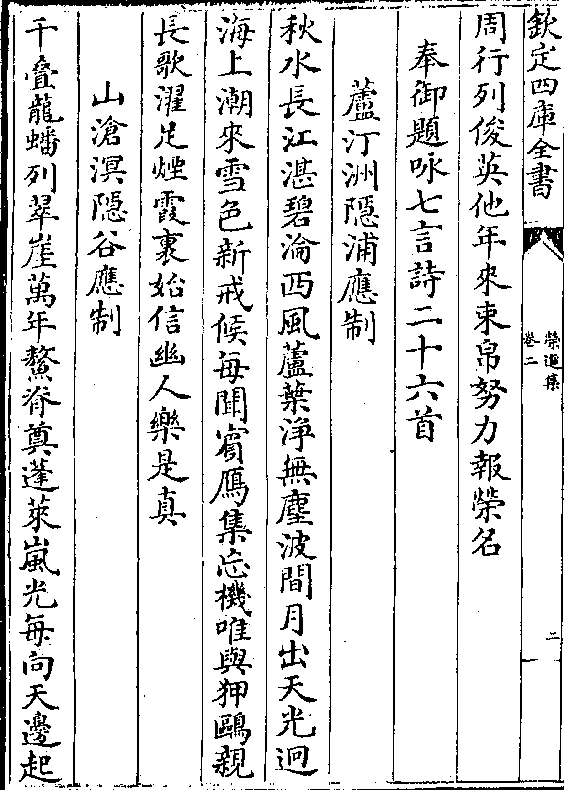 欽定四庫全書
榮進集
卷二
二
周行列俊英他年來束帛努力報榮名
奉御題咏七言詩二十六首
蘆汀洲隱浦應制
秋水長江湛碧淪西風蘆葉浄無塵波間月出天光迥
海上潮來雪色新戒候每聞賓鴈集忘機唯與狎鷗親
長歌濯足煙霞裏始信幽人樂是真
山滄溟隠谷應制
千疊龍蟠列翠崖萬年鰲脊奠蓬萊嵐光每向天邊起